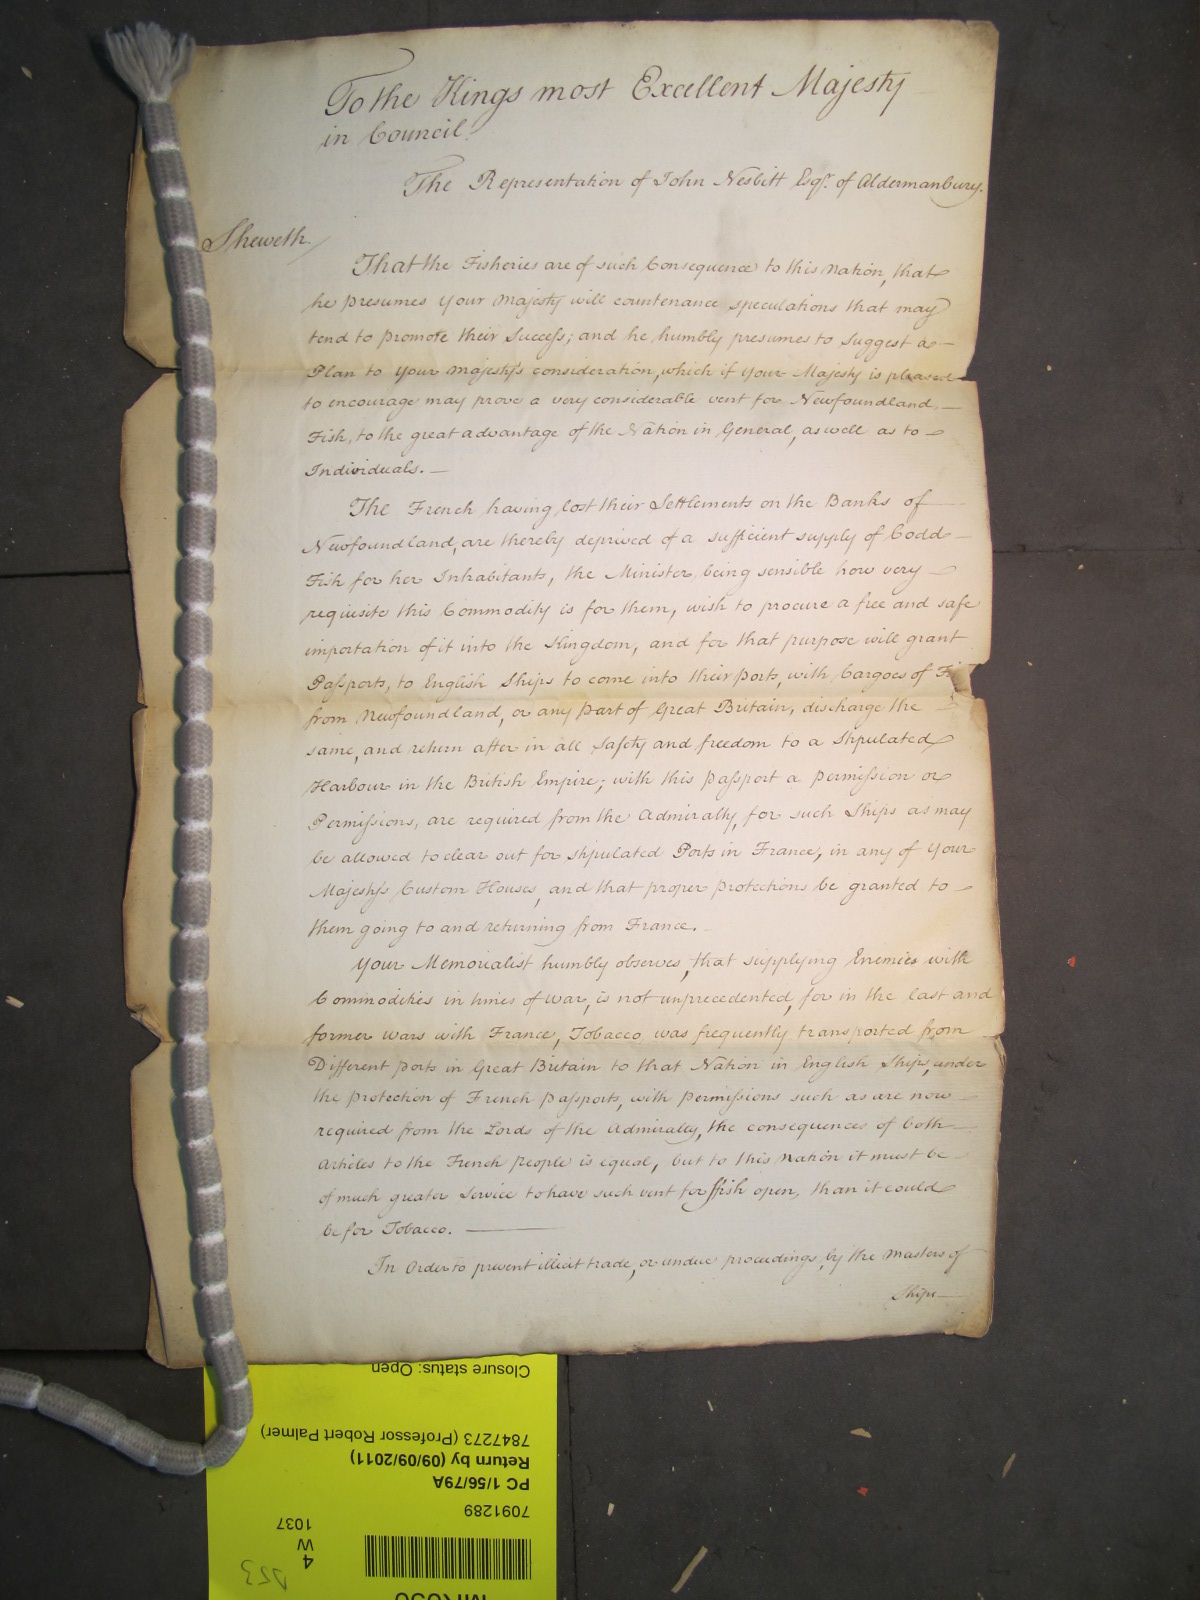 To the Kings most Excellent Majesty
in Council.
The Representation of John Nesbitt Esqr. of Aldermanbury.
Sheweth
That the Fisheries are of such Consequence to this Nation, that
he presumes your Majesty will countenance speculations that may
tend to promote their Success; and he humbly presumes to suggest a
Plan to your Majesty's consideration, which if your Majesty is pleased
to encourage may prove a very considerable vent for Newfoundland
Fish, to the great advantage of the Nation in General, as well as to
Individuals.
The French having lost their Settlements on the Banks of
Newfoundland, are thereby deprived of a sufficient supply of Codd
Fish for her Inhabitants, the Minister being sensible how very
requisite this Commodity is for them, wish to procure a free and safe
importation of it into the Kingdom, and for that purpose will grant
Passports, to English Ships to come into their ports, with Cargoes of
from Newfoundland, or any part of Great Britain, discharge the
same, and return after in all safety and freedom to a Stipulated
Harbour in the British Empire; with this passport a permission or
Permissions, are required from the Admiralty, for such Ships as may
be allowed to clear out for stipulated Ports in France, in any of your
Majesty's Custom Houses, and that proper protections be granted to
them going to and returning from France.
Your Memorialist humbly observes, that supplying Enemies with
Commodities in times of war, is not unprecedented, for in the last and
former wars with France, Tobacco was frequently transported from
Different ports in Great Britain to that Nation in English Ships, under
the protection of French passports, with permissions such as are now
required from the Lords of the Admiralty, the consequences of both
Articles to the French people is equal, but to this Nation it must be
of much greater service to have such vent for ffish open, than it could
be for Tobacco.
In Order to prevent illicit trade, or undue proceedings, by the Masters of
Ships
Closure status: Open
7847273 (Professor Robert Palmer)
Return by (09/09/2011)
PC 1/56/79A
7091289
4
W
1037